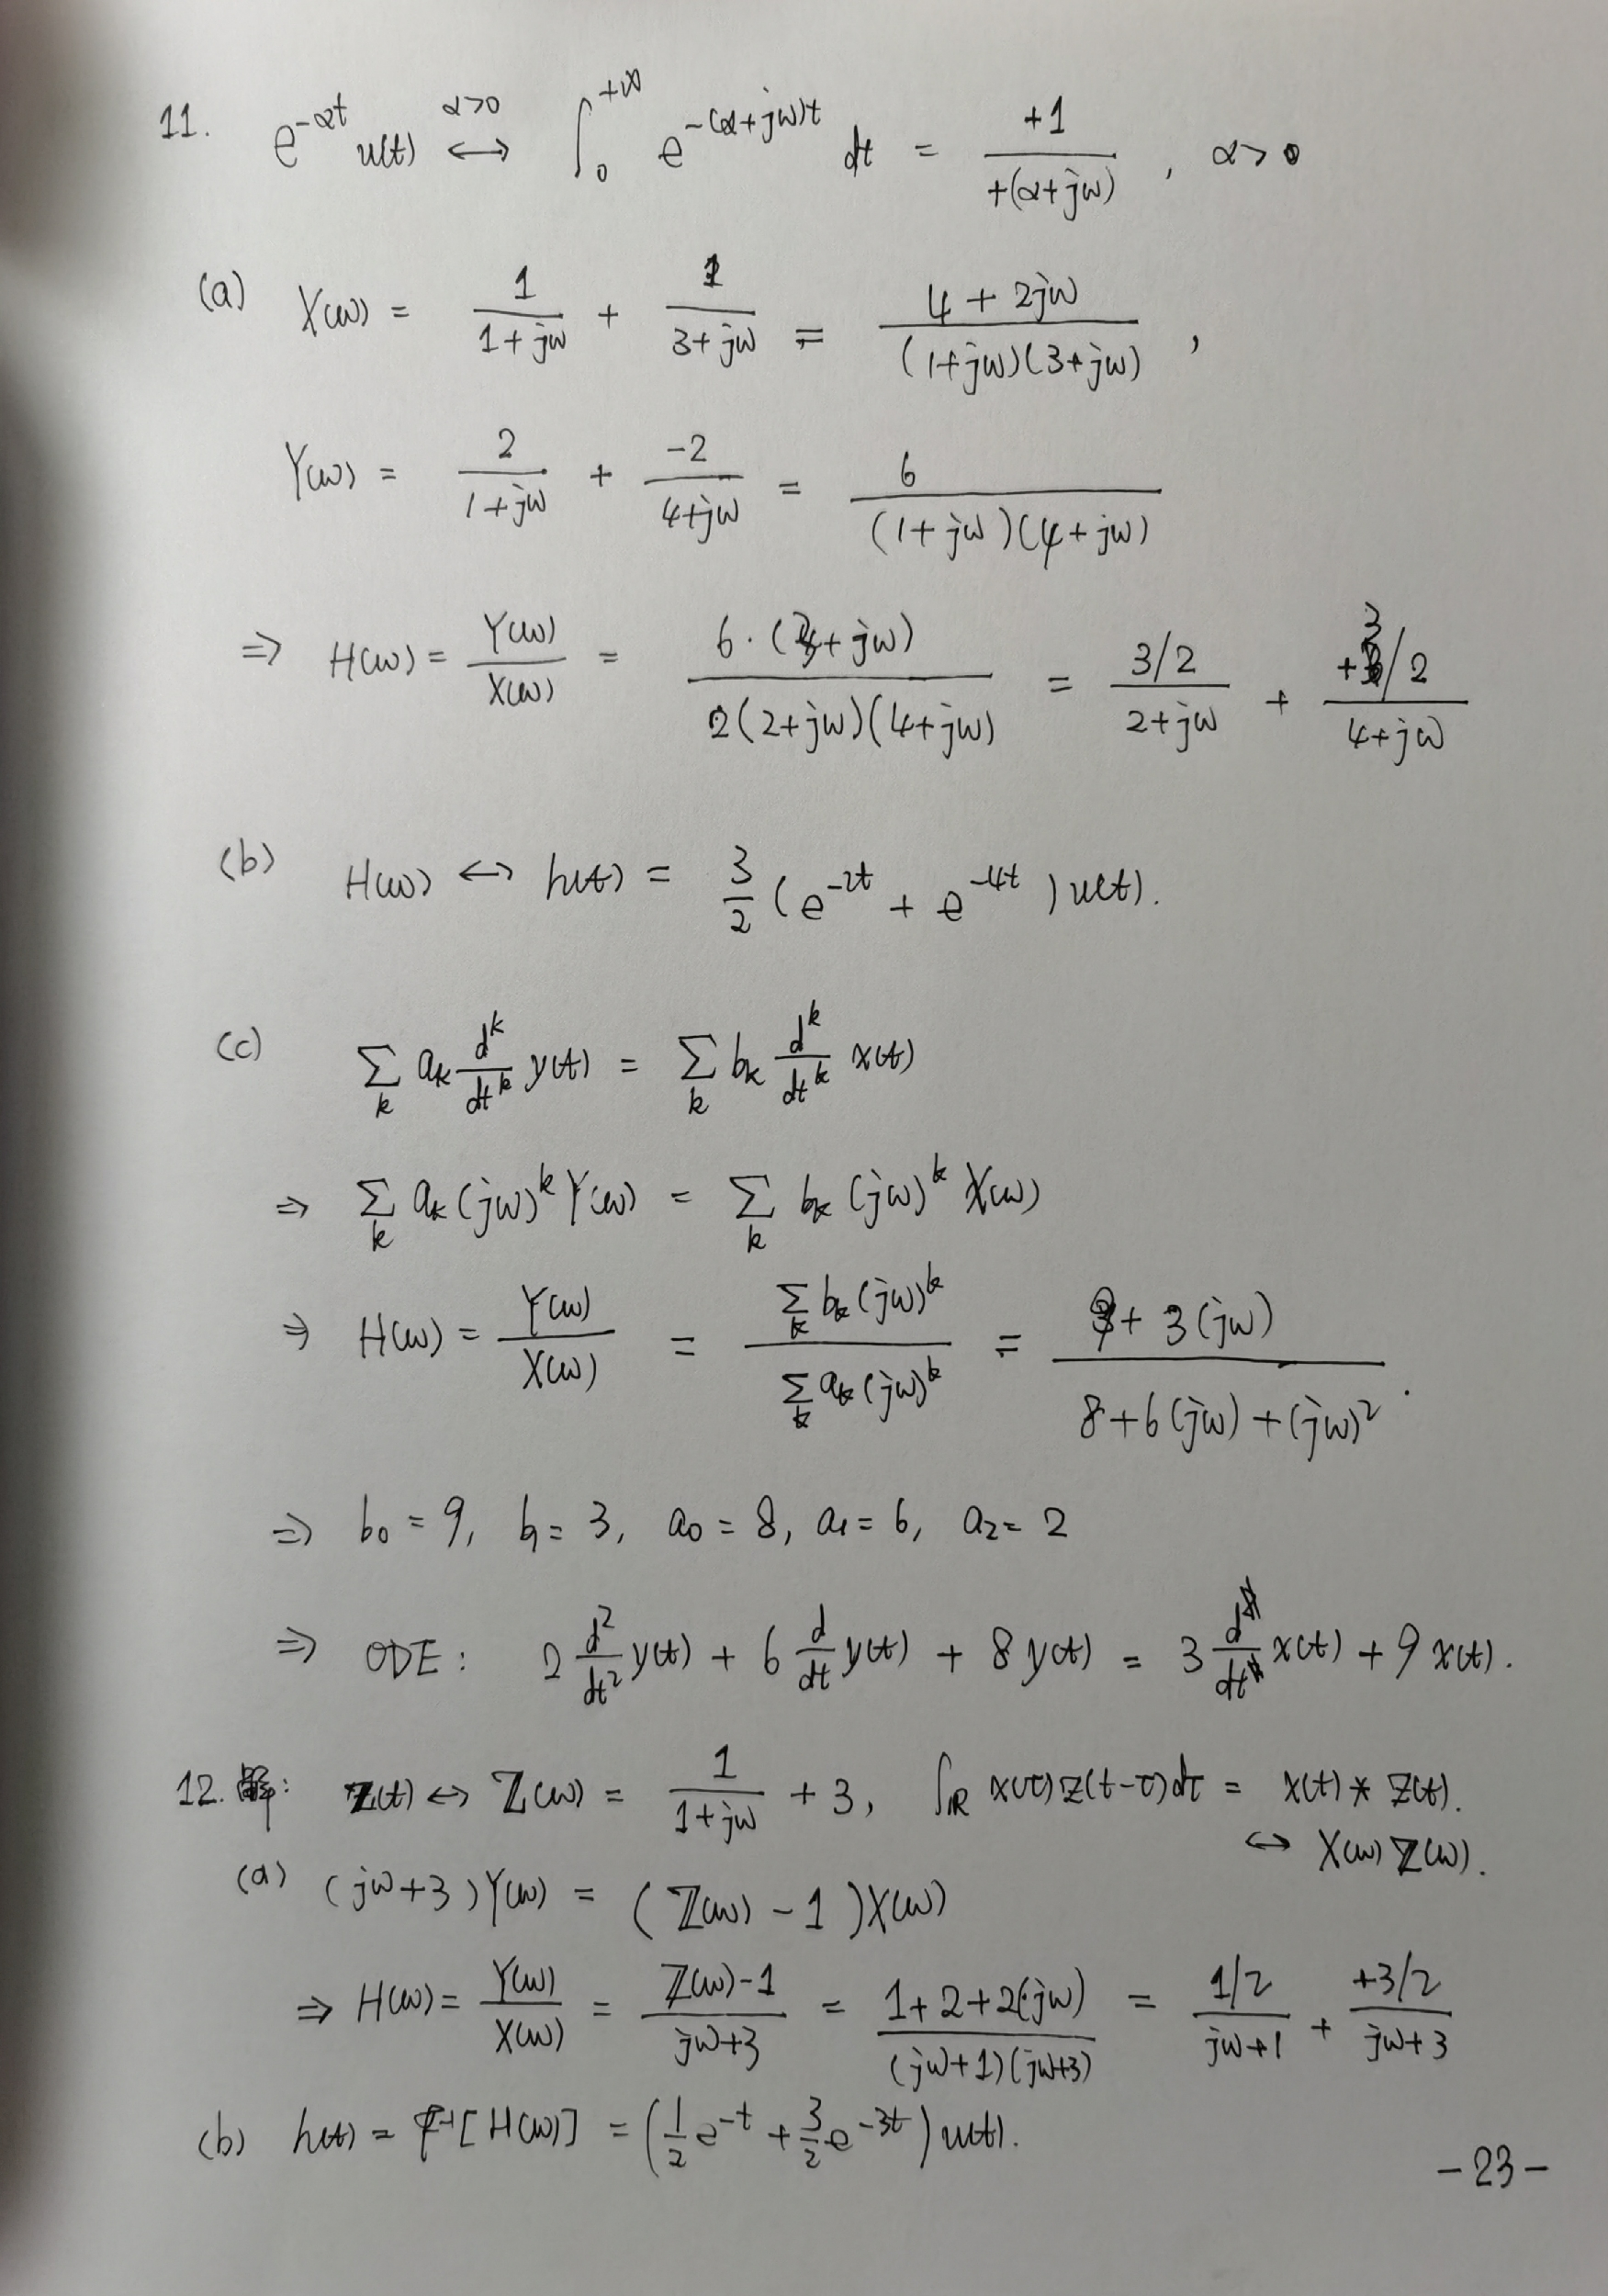 11. e^{-αt} u(t) \overset{α>0}{↔} ∫_0^{+∞} e^{-(α+jω)t} dt = \frac{+1}{+(α+jω)}, α>0
(a) X(ω) = \frac{1}{1+jω} + \frac{1}{3+jω} = \frac{4+2jω}{(1+jω)(3+jω)},
Y(ω) = \frac{2}{1+jω} + \frac{-2}{4+jω} = \frac{6}{(1+jω)(4+jω)}
⇒ H(ω) = \frac{Y(ω)}{X(ω)} = \frac{6·(3+jω)}{2(2+jω)(4+jω)} = \frac{3/2}{2+jω} + \frac{+3/2}{4+jω}
(b) H(ω) ↔ h(t) = \frac{3}{2}(e^{-2t} + e^{-4t})u(t).
(c) ∑_k a_k \frac{d^k}{dt^k} y(t) = ∑_k b_k \frac{d^k}{dt^k} x(t)
⇒ ∑_k a_k (jω)^k Y(ω) = ∑_k b_k (jω)^k X(ω)
⇒ H(ω) = \frac{Y(ω)}{X(ω)} = \frac{∑_k b_k (jω)^k}{∑_k a_k (jω)^k} = \frac{9+3(jω)}{8+6(jω)+(jω)^2}.
⇒ b_0 = 9, b_1 = 3, a_0 = 8, a_1 = 6, a_2 = 2
⇒ ODE: 2\frac{d^2}{dt^2}y(t) + 6\frac{d}{dt}y(t) + 8y(t) = 3\frac{d}{dt}x(t) + 9x(t).
12. 解: z(t) ↔ Z(ω) = \frac{1}{1+jω} + 3, ∫_ℝ x(τ)z(t-τ)dτ = x(t) * z(t).
↔ X(ω)Z(ω).
(a) (jω+3)Y(ω) = (Z(ω) - 1)X(ω)
⇒ H(ω) = \frac{Y(ω)}{X(ω)} = \frac{Z(ω)-1}{jω+3} = \frac{1+2+2(jω)}{(jω+1)(jω+3)} = \frac{1/2}{jω+1} + \frac{+3/2}{jω+3}
(b) h(t) = F^{-1}[H(ω)] = (\frac{1}{2}e^{-t} + \frac{3}{2}e^{-3t})u(t).
-23-